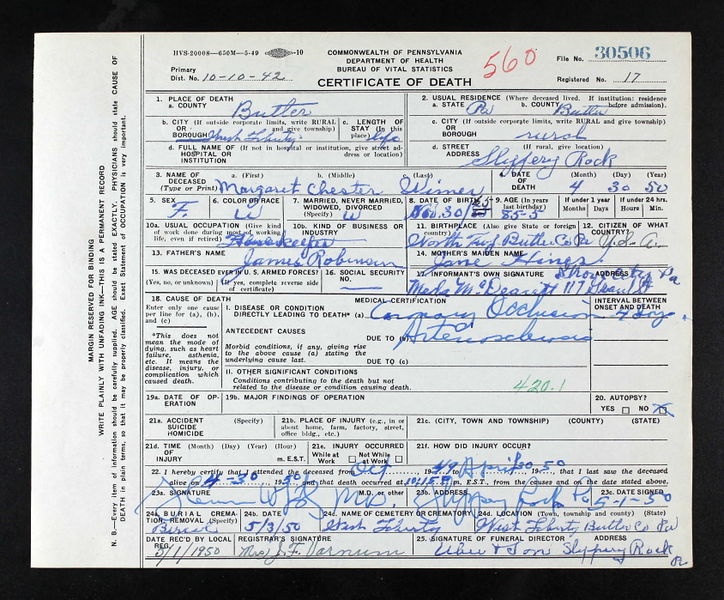 HVS-20008—650M—5-49 10
COMMONWEALTH OF PENNSYLVANIA
DEPARTMENT OF HEALTH
BUREAU OF VITAL STATISTICS
CERTIFICATE OF DEATH
560
File No. 30506
Primary
Dist. No. 10-10-42
Registered No. 17
1. PLACE OF DEATH
a. COUNTY Butler
2. USUAL RESIDENCE (Where deceased lived. If institution: residence before admission).
a. STATE Pa b. COUNTY Butler
b. CITY (If outside corporate limits, write RURAL
OR and give township)
BOROUGH West Liberty
c. LENGTH OF
STAY (In this
place) life
c. CITY (If outside corporate limits, write RURAL and give township)
OR
BOROUGH rural
d. FULL NAME OF (If not in hospital or institution, give street address or location)
HOSPITAL OR
INSTITUTION
d. STREET (If rural, give location)
ADDRESS Slippery Rock
3. NAME OF a. (First) b. (Middle) c. (Last)
DECEASED
(Type or Print) Margaret Chester
4. DATE (Month) (Day) (Year)
OF
DEATH 4 30 50
5. SEX F.
6. COLOR OR RACE W
7. MARRIED, NEVER MARRIED,
WIDOWED, DIVORCED
(Specify) W
8. DATE OF BIRTH Nov. 30
9. AGE (In years
last birthday) 85-5
If under 1 year
Months Days
If under 24 hrs.
Hours Min.
10a. USUAL OCCUPATION (Give kind
of work done during most of working
life, even if retired) Housekeeper
10b. KIND OF BUSINESS OR
INDUSTRY
11. BIRTHPLACE (Also give State or foreign country)
Worth Twp Butler Co Pa
12. CITIZEN OF WHAT
COUNTRY?
U.S.A.
13. FATHER'S NAME
James Robinson
14. MOTHER'S MAIDEN NAME
Jane
15. WAS DECEASED EVER IN U.S. ARMED FORCES?
(Yes, no, or unknown) (If yes, complete reverse side
of certificate)
16. SOCIAL SECURITY
NO.
17. INFORMANT'S OWN SIGNATURE ADDRESS
Pa
18. CAUSE OF DEATH
Enter only one cause
per line for (a), (b),
and (c)
*This does not
mean the mode of
dying, such as heart
failure, asthenia,
etc. It means the
disease, injury, or
complication which
caused death.
MEDICAL CERTIFICATION
I. DISEASE OR CONDITION
DIRECTLY LEADING TO DEATH* (a) Coronary Occlusion
INTERVAL BETWEEN
ONSET AND DEATH
ANTECEDENT CAUSES
DUE TO (b) Arteriosclerosis
Morbid conditions, if any, giving rise
to the above cause (a) stating the
underlying cause last.
DUE TO (c)
II. OTHER SIGNIFICANT CONDITIONS
Conditions contributing to the death but not
related to the disease or condition causing death.
420.1
19a. DATE OF OPERATION
19b. MAJOR FINDINGS OF OPERATION
20. AUTOPSY?
YES NO X
21a. ACCIDENT (Specify)
SUICIDE
HOMICIDE
21b. PLACE OF INJURY (e.g., in or
about home, farm, factory, street,
office bldg., etc.)
21c. (CITY, TOWN AND TOWNSHIP) (COUNTY) (STATE)
21d. TIME (Month) (Day) (Year) (Hour)
OF
INJURY m. EST.
21e. INJURY OCCURRED
While at Work Not While at Work
21f. HOW DID INJURY OCCUR?
22. I hereby certify that I attended the deceased from Oct 1949 to April 30, 1950, that I last saw the deceased
alive on 4-30 1950, and that death occurred at m., EST., from the causes and on the date stated above.
23a. SIGNATURE M.D. or other
23b. ADDRESS Slippery Rock Pa
23c. DATE SIGNED 5-1-50
24a. BURIAL, CREMATION, REMOVAL (Specify)
Burial
24b. DATE
5/3/50
24c. NAME OF CEMETERY OR CREMATORY
West Liberty
24d. LOCATION (Town, township and county) (State)
West Liberty, Butler Co Pa
DATE REC'D BY LOCAL
REG. 5/1/1950
REGISTRAR'S SIGNATURE
Mrs J. F. Varnum
25. SIGNATURE OF FUNERAL DIRECTOR ADDRESS
Uber & Son Slippery Rock
MARGIN RESERVED FOR BINDING
WRITE PLAINLY WITH UNFADING INK—THIS IS A PERMANENT RECORD
N. B.—Every item of information should be carefully supplied. AGE should be stated EXACTLY. PHYSICIANS should state CAUSE OF
DEATH in plain terms, so that it may be properly classified. Exact Statement of OCCUPATION is very important.